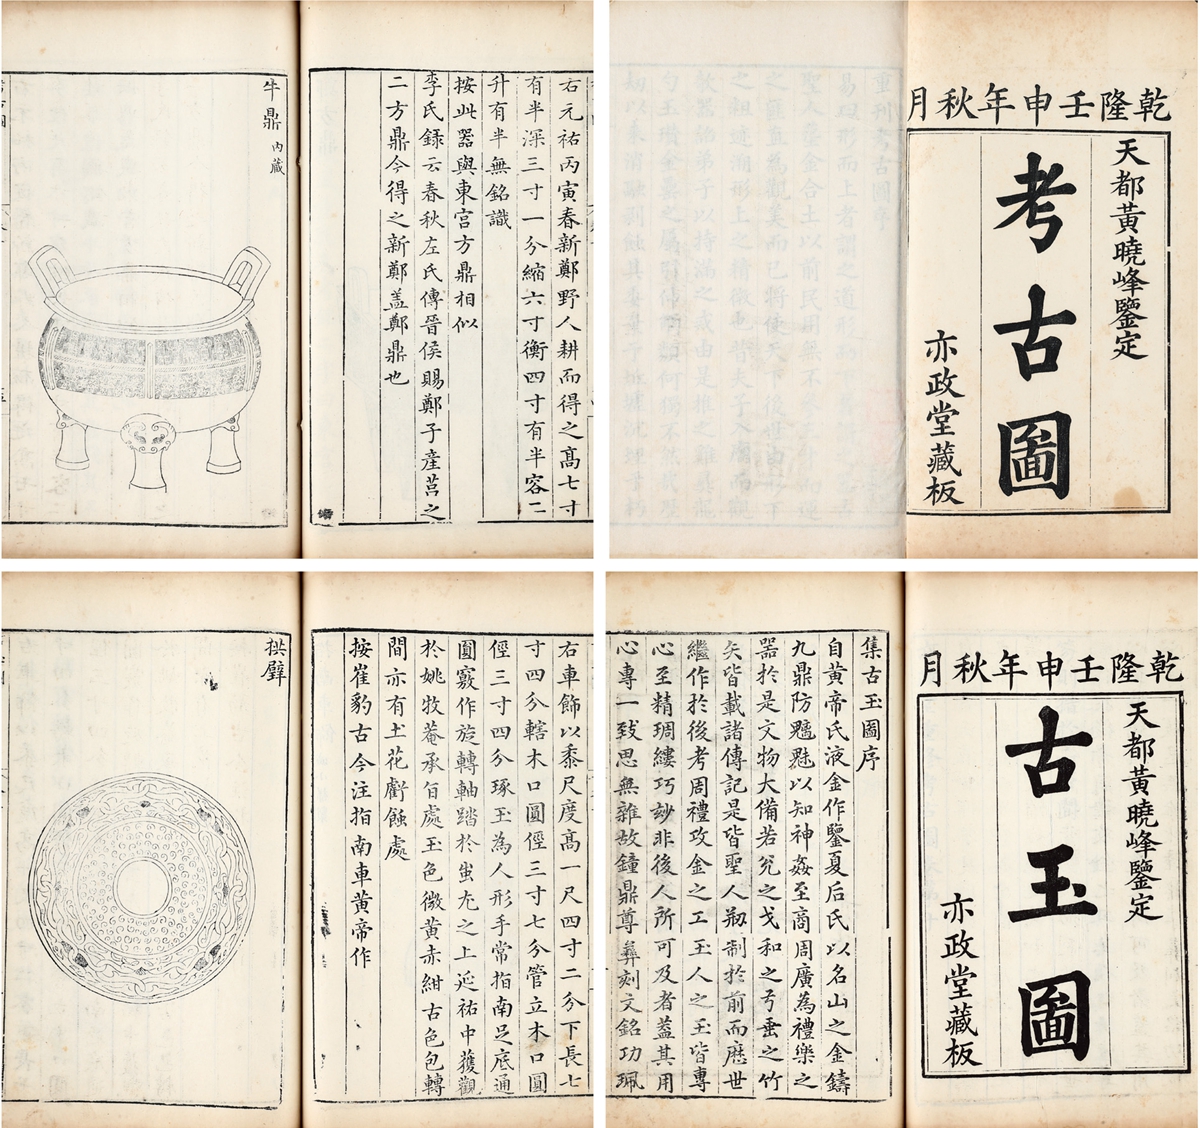 乾隆壬申年秋月
天都黃曉峰鑒定
考古圖
亦政堂藏板
重刊考古圖序
右元祐丙寅春新鄭野人耕而得之高七寸
有半深三寸一分縮六寸衡四寸有半容二
升有半無銘識
按此器與東宮方鼎相似
李氏録云春秋左氏傳晉侯賜鄭子產莒之
二方鼎今得之新鄭盖鄭鼎也
牛鼎 內藏
乾隆壬申年秋月
天都黃曉峰鑒定
古玉圖
亦政堂藏板
集古玉圖序
自黃帝氏液金作鑒夏后氏以名山之金鑄
九鼎防魑魅以知神姦至商周廣為禮樂之
器於是文物大備若兊之戈和之弓垂之竹
矢皆載諸傳記是皆聖人剙制於前而歷世
繼作於後考周禮攻金之工玉人之玉皆專
心至精琱縷巧玅非後人所可及者葢其用
心專一致思無雜故鐘鼎尊彞刻文銘功珮
右車飾以黍尺度高一尺四寸二分下長七
寸四分轄木口圓徑三寸七分管立木口圓
徑三寸四分琢玉為人形手常指南足底通
圓竅作旋轉軸踏於蚩尤之上延祐中獲觀
於姚牧菴承旨處玉色微黃赤紺古色包轉
間亦有土花虧蝕處
按崔豹古今注指南車黃帝作
拱璧